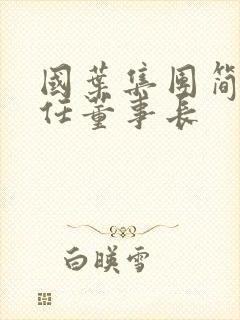 國葉集團简
任董事长
白暎雪